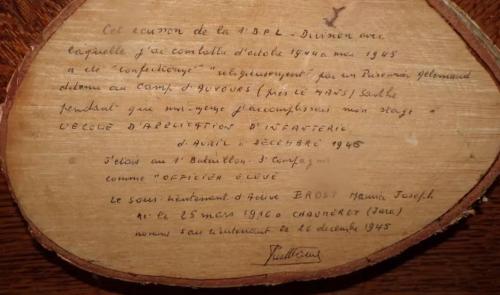 Cet écusson de la 1° D.F.L - Division avec
laquelle j'ai combattu d'octobre 1944 a mai 1945
a été "confectionné" "religieusement" par un Prisonnier Allemand
détenu au camp d'AUVOURS (près LE MANS) Sarthe
pendant que moi-même j'accomplissais mon stage à
L'ECOLE D'APPLICATION D'INFANTERIE
d'AVRIL à DECEMBRE 1945
J'étais au 1° Bataillon - 3° Compagnie
comme "OFFICIER ELEVE"
Le sous-lieutenant d'Active Maurice Joseph
Né le 25 mars a (Jura)
nommé sous lieutenant le 26 decembre 1945